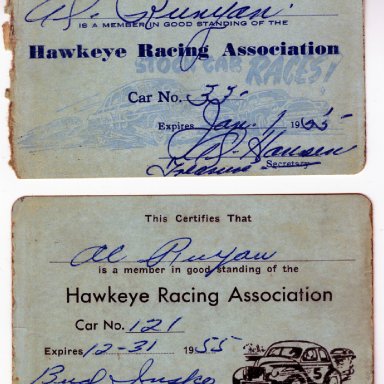 Al Runyan
IS A MEMBER IN GOOD STANDING OF THE
Hawkeye Racing Association
STOCK CAR RACES!
Car No. 33
Expires Jan. 1 1955
Hansen
Treasurer Secretary
This Certifies That
Al Runyan
is a member in good standing of the
Hawkeye Racing Association
Car No. 121
Expires 12-31 1955
Bud
5